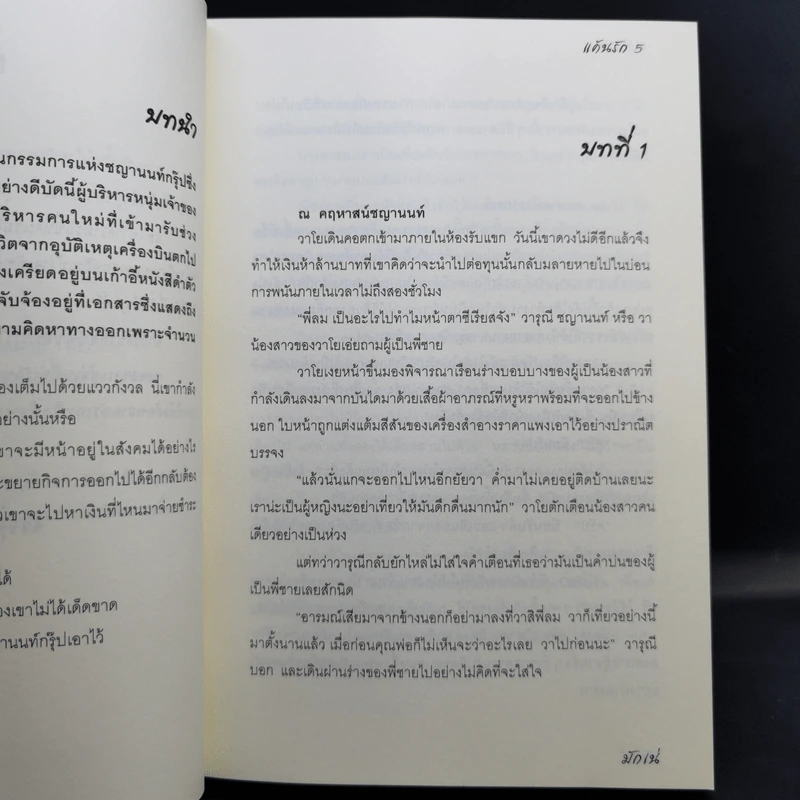 บทนำ
นกรรมการแห่งชญานนท์กรุ๊ปซึ่ง
ย่างดีบัดนี้ผู้บริหารหนุ่มเจ้าของ
ริหารคนใหม่ที่เข้ามารับช่วง
วิตจากอุบัติเหตุเครื่องบินตกไป
งเครียดอยู่บนเก้าอี้หนังสีดำตัว
จับจ้องอยู่ที่เอกสารซึ่งแสดงถึง
ามคิดหาทางออกเพราะจำนวน
องเต็มไปด้วยแววกังวล นี่เขากำลัง
อย่างนั้นหรือ
ขาจะมีหน้าอยู่ในสังคมได้อย่างไร
ะขยายกิจการออกไปได้อีกกลับต้อง
วเขาจะไปหาเงินที่ไหนมาจ่ายชำระ
ได้
องเขาไม่ได้เด็ดขาด
านนท์กรุ๊ปเอาไว้
แค้นรัก 5
บทที่ 1
ณ คฤหาสน์ชญานนท์
วาโยเดินคอตกเข้ามาภายในห้องรับแขก วันนี้เขาดวงไม่ดีอีกแล้วจึง
ทำให้เงินห้าล้านบาทที่เขาคิดว่าจะนำไปต่อทุนนั้นกลับมลายหายไปในบ่อน
การพนันภายในเวลาไม่ถึงสองชั่วโมง
“พี่ลม เป็นอะไรไปทำไมหน้าตาซีเรียสจัง” วารุณี ชญานนท์ หรือ วา
น้องสาวของวาโยเอ่ยถามผู้เป็นพี่ชาย
วาโยเงยหน้าขึ้นมองพิจารณาเรือนร่างบอบบางของผู้เป็นน้องสาวที่
กำลังเดินลงมาจากบันไดมาด้วยเสื้อผ้าอาภรณ์ที่หรูหราพร้อมที่จะออกไปข้าง
นอก ใบหน้าถูกแต่งแต้มสีสันของเครื่องสำอางราคาแพงเอาไว้อย่างปราณีต
บรรจง
“แล้วนั่นแกจะออกไปไหนอีกยัยวา ค่ำมาไม่เคยอยู่ติดบ้านเลยนะ
เราน่ะเป็นผู้หญิงนะอย่าเที่ยวให้มันดึกดื่นมากนัก” วาโยตักเตือนน้องสาวคน
เดียวอย่างเป็นห่วง
แต่ทว่าวารุณีกลับยักไหล่ไม่ใส่ใจคำเตือนที่เธอว่ามันเป็นคำบ่นของผู้
เป็นพี่ชายเลยสักนิด
“อารมณ์เสียมาจากข้างนอกก็อย่ามาลงที่วาสิพี่ลม วาก็เที่ยวอย่างนี้
มาตั้งนานแล้ว เมื่อก่อนคุณพ่อก็ไม่เห็นจะว่าอะไรเลย วาไปก่อนนะ” วารุณี
บอก และเดินผ่านร่างของพี่ชายไปอย่างไม่คิดที่จะใส่ใจ
มักเน่